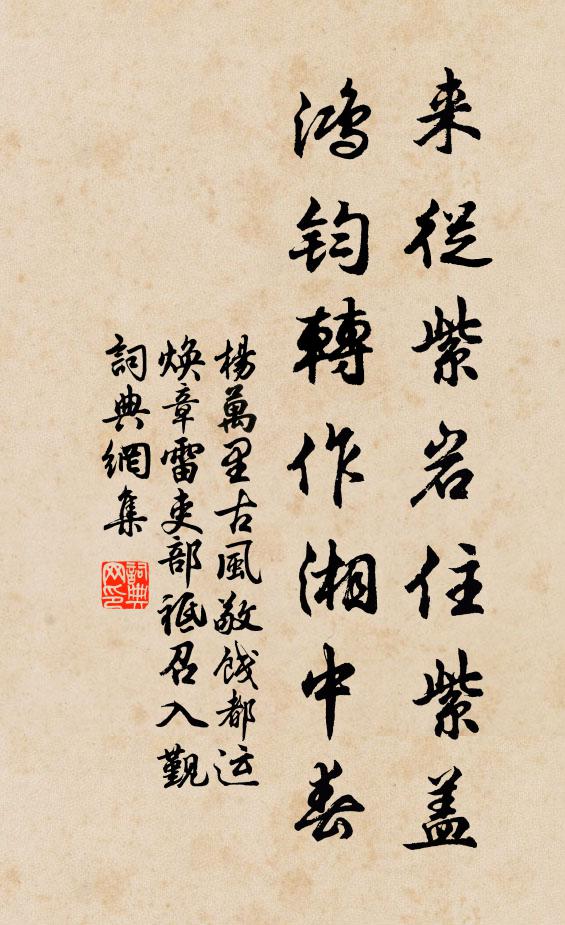 来從紫岩住紫盖
鸿钧轉作湘中春
楊萬里古風敬餞都运
焕章雷吏部祗召入觐
詞典網集
詞典
网印